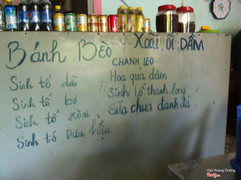 Bánh Bèo
Xoài ổi DẦM
CHANH LEO
Sinh tố dừa
Sinh tố bơ
Sinh tố xoài
Sinh tố Dưa hấu
Hoa quả dầm
Sinh tố thanh long
Sữa chua đánh đá